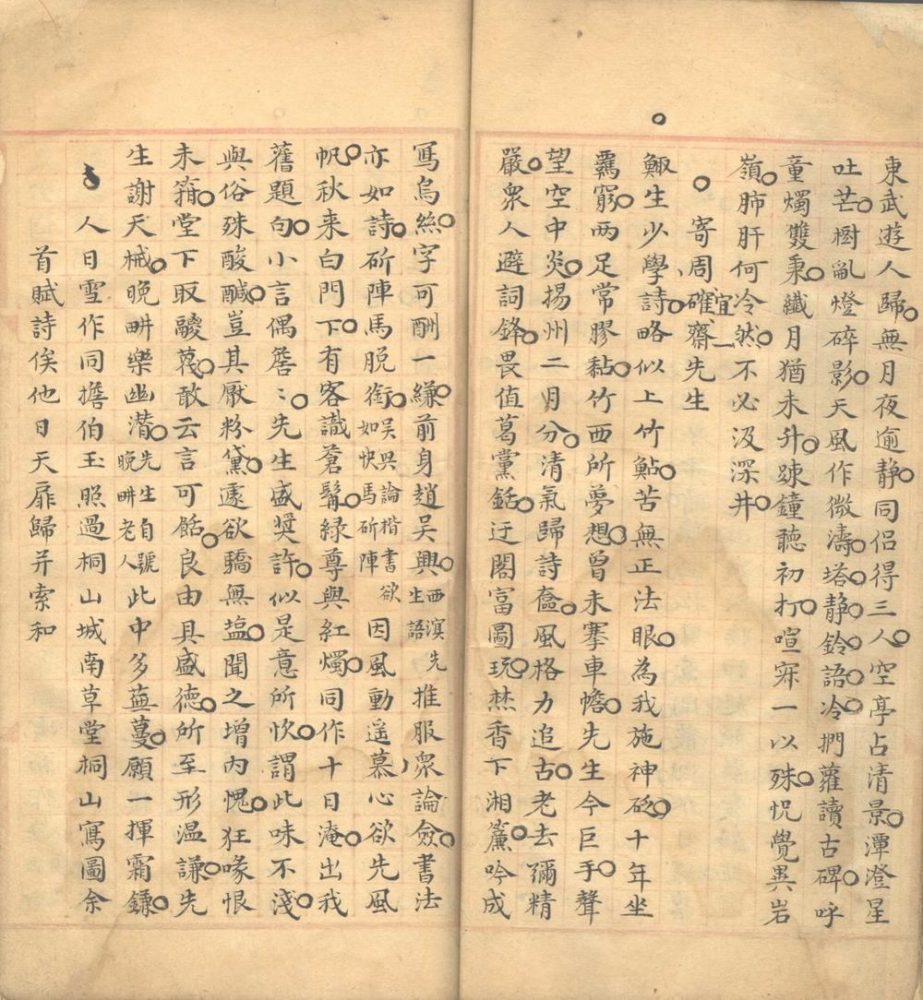 東武遊人歸無月夜逾静同侣得三人空亭占清景潭澄星
吐芒樹亂燈碎影天風作微濤塔静鈴語冷捫蘿讀古碑呼
童燭雙秉纖月猶未升疎鐘聽初打喧寂一以殊怳覺異岩
嶺肺肝何冷然不必汲深井
寄周確齋先生
宜
鯫生少學詩略似上竹鮎苦無正法眼為我施神砭十年坐
羁窮兩足常膠黏竹西所夢想曾未搴車幨先生今巨手聲
望空中炎揚州二月分清氣歸詩奩風格力追古老去彌精
嚴衆人避詞鋒畏值葛黨銛迂閣富圖玩焚香下湘簾吟成
寫烏絲字可酬一縑前身趙吳興西濵先生語推服衆論僉書法
亦如詩斫陣馬脱銜吴㕦論楷書欲如快馬斫陣因風動遥慕心欲先風
帆秋来白門下有客識蒼髯緑尊與紅燭同作十日淹出我
舊題句小言偶詹〻先生盛奬許似是意所忺謂此味不淺
與俗殊酸醎豈其厭粉黛遽欲驕無塩聞之增内愧狂喙恨
未箝堂下取鬷蔑敢云言可餂良由具盛德所至形温謙先
生謝天械晚畊樂幽潛先生自號晚畊老人此中多蕪蔓願一揮霜鐮
人日雪作同擔伯玉照過桐山城南草堂桐山寫圖余
首賦詩俟他日天扉歸并索和